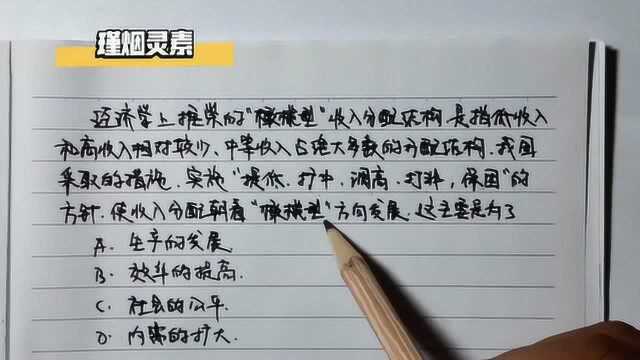 瑾烟灵素
经济学上推崇的"橄榄型"收入分配结构，是指低收入
和高收入相对较少、中等收入占绝大多数的分配结构。我国
采取的措施，实施"提低、扩中、调高、打非、保困"的
方针，使收入分配朝着"橄榄型"方向发展。这主要是为了
A. 生产的发展
B. 效率的提高
C. 社会的公平
D. 内需的扩大